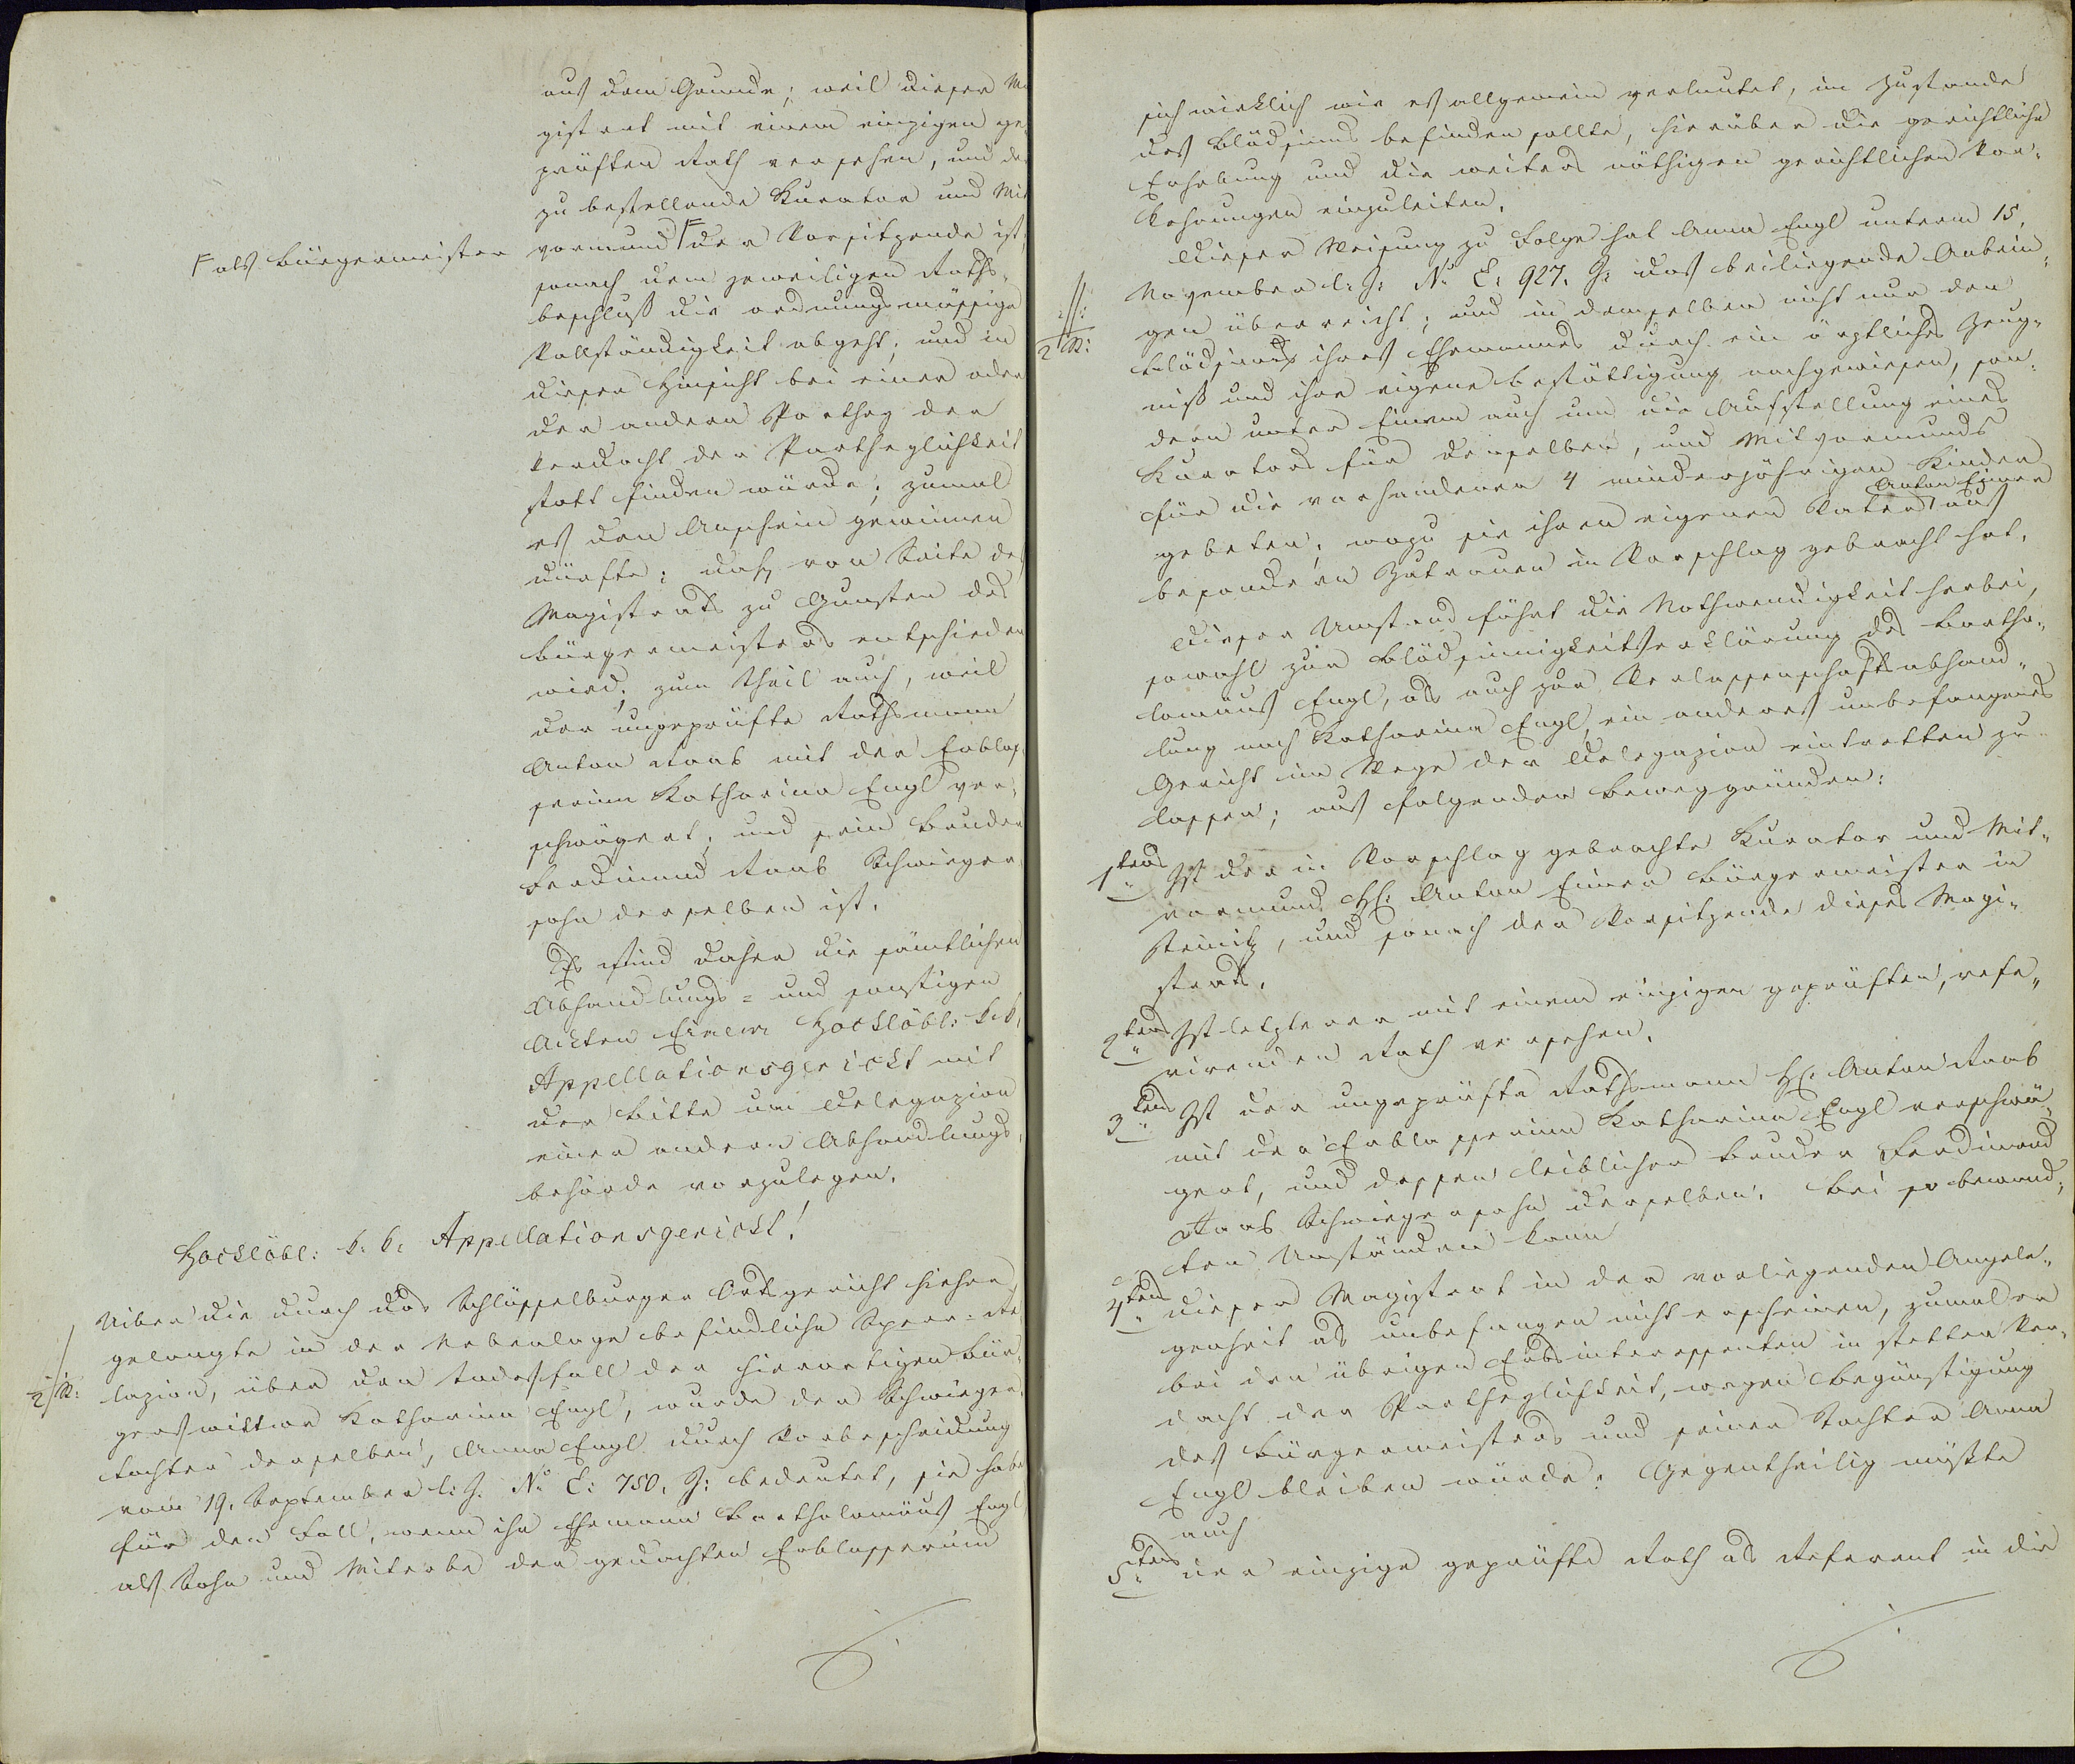 aus dem Grunde; weil dieser Ma
gistrat mit einem einzigen ge¬
prüften Rath versehen, und der
zu bestellende Kurator und Mit
vormund F der Vorsitzende ist,
F als Bürgermeister
sonach dem jeweiligen Raths¬
beschluß die ordnungsmässige
Vollständigkeit abgeht; und in
dieser Hinsicht bei einer oder
der andern Parthey der
Verdacht der Partheylichkeit
statt finden würde; zumal
es den Anschein gewinnen
dürfte; daß von Seite des
Magistrats zu Gunsten des
Bürgermeisters entschieden
wird; zum Theil auch, weil
der ungeprüfte Rathsmann
Anton Raab mit der Erblas¬
serinn Katharina Engl ver¬
schwägert; und sein Bruder
Ferdinand Raab Schwieger
sohn derselben ist.
Es sind daher die sämtlichen
Abhandlungs= und sonstigen
Ackten Einem Hochlöbl: k. k.
Appellationsgericht mit
der Bitte um Delegazion
einer andern Abhandlungs¬
behörde vorzulegen.
Hochlöbl: k. k. Appellationsgericht!
Uiber die durch das Schlüsselburger Ortsgericht hieher
gelangte in der Nebenlage befindliche Sperr=Re
2/R: lazion, über den Todesfall der hierortigen Bür¬
gerswittwe Katharina Engl, wurde der Schwieger¬
tochter derselben, Anna Engl durch Vorbescheidung
vom 19. September l: J. No E: 750. J: bedeutet, sie habe
für den Fall, wenn ihr Ehemann Bartholomäus Engl
als Sohn und Miterbe der gedachten Erblasserinn
sich wirklich wie es allgemein verlautet, im Zustande
des Blödsinns befinden sollte, hierüber die gerichtliche
Erhebung und die weiters nöthigen gerichtlichen Vor¬
kehrungen einzuleiten.
Dieser Weisung zu Folge hat Anna Engl unterm 15.
November l: J: No E: 927. J: das beiliegende Anbrin¬
2 R: gen überreicht; und in demselben nicht nur den
Blödsinns ihres Ehemannes durch ein ärztliches Zeug¬
niß und ihre eigene Bestättigung nachgewiesen, son¬
dern unter Einem auch um die Aufstellung eines
Kurators für denselben, und Mitvormunds
für die vorhandenen 4 minderjährigen Kinder
gebeten; wozu sie ihren eigenen Vater Anton Eimer aus
besonderen Zutrauen in Vorschlag gebracht hat.
Dieser Umstand führt die Nothwendigkeit herbei,
sowohl zur Blödsinnigkeitserklärung des Bartho¬
lomäus Engl, als auch zur Verlassenschaftsabhand¬
lung nach Katharina Engl, ein anderes unbefangenes
Gericht im Wege der Delegazion eintretten zu
lassen; aus folgenden Beweggründen:
1tens Ist der in Vorschlag gebrachte Kurator und Mit¬
vormund H: Anton Eimer Bürgermeister in
Steinitz, und sonach der Vorsitzende dieses Magi¬
strats.
2tens Ist letzterer mit einem einzigen geprüften, refe¬
rirenden Rath versehen.
3tens Ist der ungeprüfte Rathsmann H: Anton Raab
mit der Erblasserinn Katharina Engl verschwä¬
gert, und dessen leiblicher Bruder Ferdinand
Raab Schwiegersohn derselben. Bei so bewand¬
ten Umständen kann
4tens dieser Magistrat in der vorliegenden Angele¬
genheit als unbefangen nicht erscheinen, zumal er
bei den übrigen Erbsinteressenten in stetten Ver¬
dacht der Partheylichkeit, wegen Begünstigung
des Bürgermeisters und seiner Tochter Anna
Engl bleiben würde. Gegentheilig müßte
auch
5tens der einzige geprüfte Rath als Referent in die